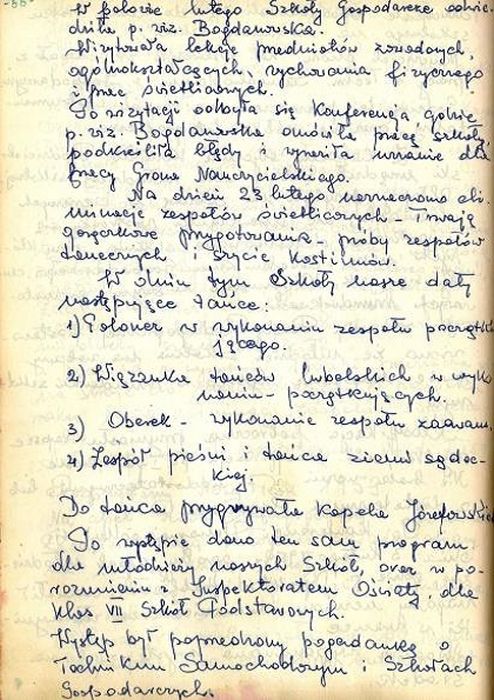 W połowie lutego Szkoły Gospodarcze odwie-
dziła p. wiz. Bogdanowska.
Wizytowała lekcje przedmiotów zawodowych,
ogólnokształcących, wychowania fizycznego
i prac świetlicowych.
Po wizytacji odbyła się Konferencja, gdzie
p. wiz. Bogdanowska omówiła pracę szkoły
podkreśliła błędy i wyraziła uznanie dla
pracy Grona Nauczycielskiego.
Na dzień 23 lutego wyznaczono eli-
minacje zespołów świetlicowych - Trwają
gorączkowe przygotowania - próby zespołów
tanecznych i szycie kostiumów.
W dniu tym Szkoły nasze dały
następujące tańce:
1) Polonez w wykonaniu zespołu początku
jącego.
2) Wiązanka tańców lubelskich w wyko
naniu - początkujących.
3) Oberek - wykonanie zespołu zaawans.
4) Zespół pieśni i tańca ziemi sądec-
kiej.
Do tańca przygrywała Kapela Józefowskich
Po występie dano ten sam program
dla młodzieży naszych Szkół, oraz w po-
rozumieniu z Inspektoratem Oświaty, dla
klas VII Szkół Podstawowych.
Występ był poprzedzony pogadanką o
Technikum Samochodowym i Szkołach
Gospodarczych.